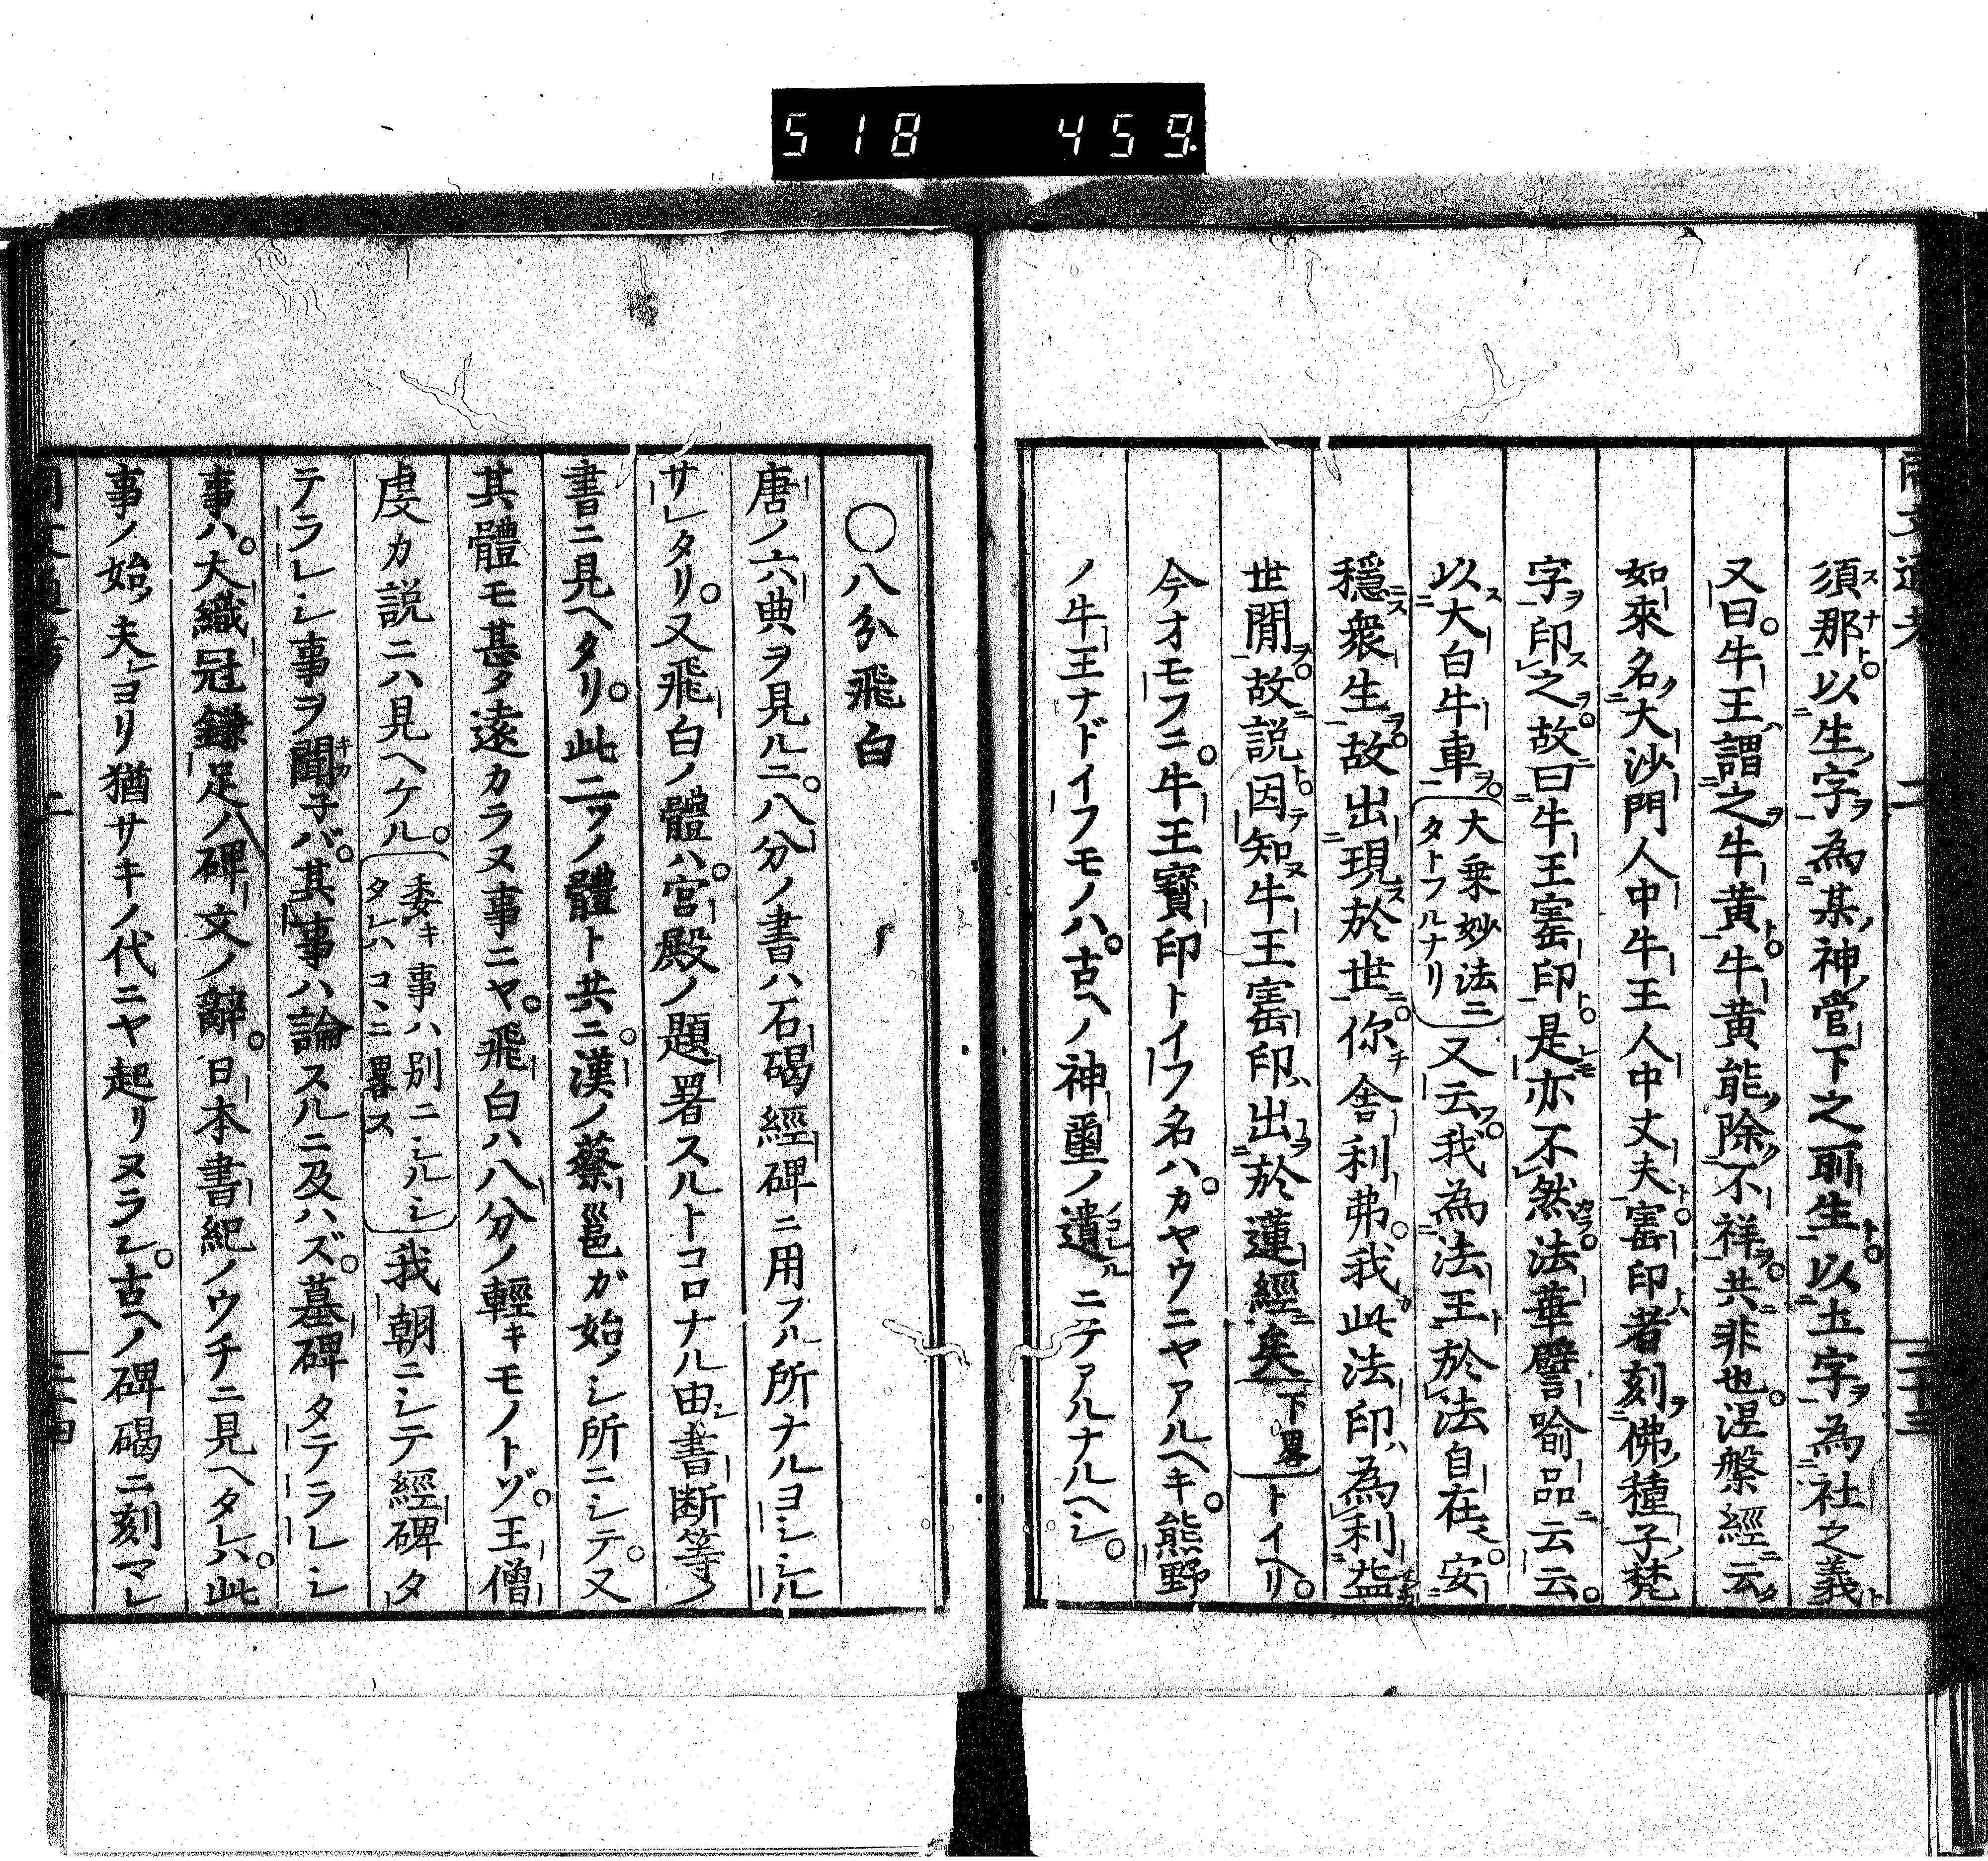 518 459
須那以生字為某神管下之所生以土字為社之義
又曰牛王謂之牛黄牛黄能除不祥共非也涅槃經云
如來名大沙門人中牛王人中丈夫寳印者刻佛種子梵
字印之故曰牛王寳印是亦不然法華譬喻品云云
以大白牛車大乗妙法ニタトフルナリ又云我為法王於法自在安
穩衆生故出現於世你舎利弗我此法印為利益
世間故説因知牛王寳印出於蓮經矣下畧トイヘリ
今オモフニ牛王寳印トイフ名ハカヤウニヤアルヘキ熊野
ノ牛王ナドイフモノハ古ヘノ神璽ノ遺ニテアルナルヘシ
〇八分飛白
唐ノ六典ヲ見ルニ八分ノ書ハ石碣經碑ニ用フル所ナルヨシシル
サレタリ又飛白ノ體ハ宮殿ノ題署スルトコロナル由シ書断等ノ
書ニ見ヘタリ此二ツノ體ト共ニ漢ノ蔡邕ガ始メシ所ニシテ又
其體モ甚タ遠カラヌ事ニヤ飛白ハ八分ノ輕キモノトゾ王僧
虔カ説ニハ見ヘケル委キ事ハ別ニシルシタレハコヽニ畧ス我朝ニシテ經碑タ
テラレシ事ヲ聞子バ其事ハ論スルニ及ハズ墓碑タテラレシ
事ハ大織冠鎌足ノ碑文ノ辭日本書紀ノウチニ見ヘタレハ此
事ノ始夫ヨリ猶サキノ代ニヤ起リヌラン古ヘノ碑碣ニ刻マレ